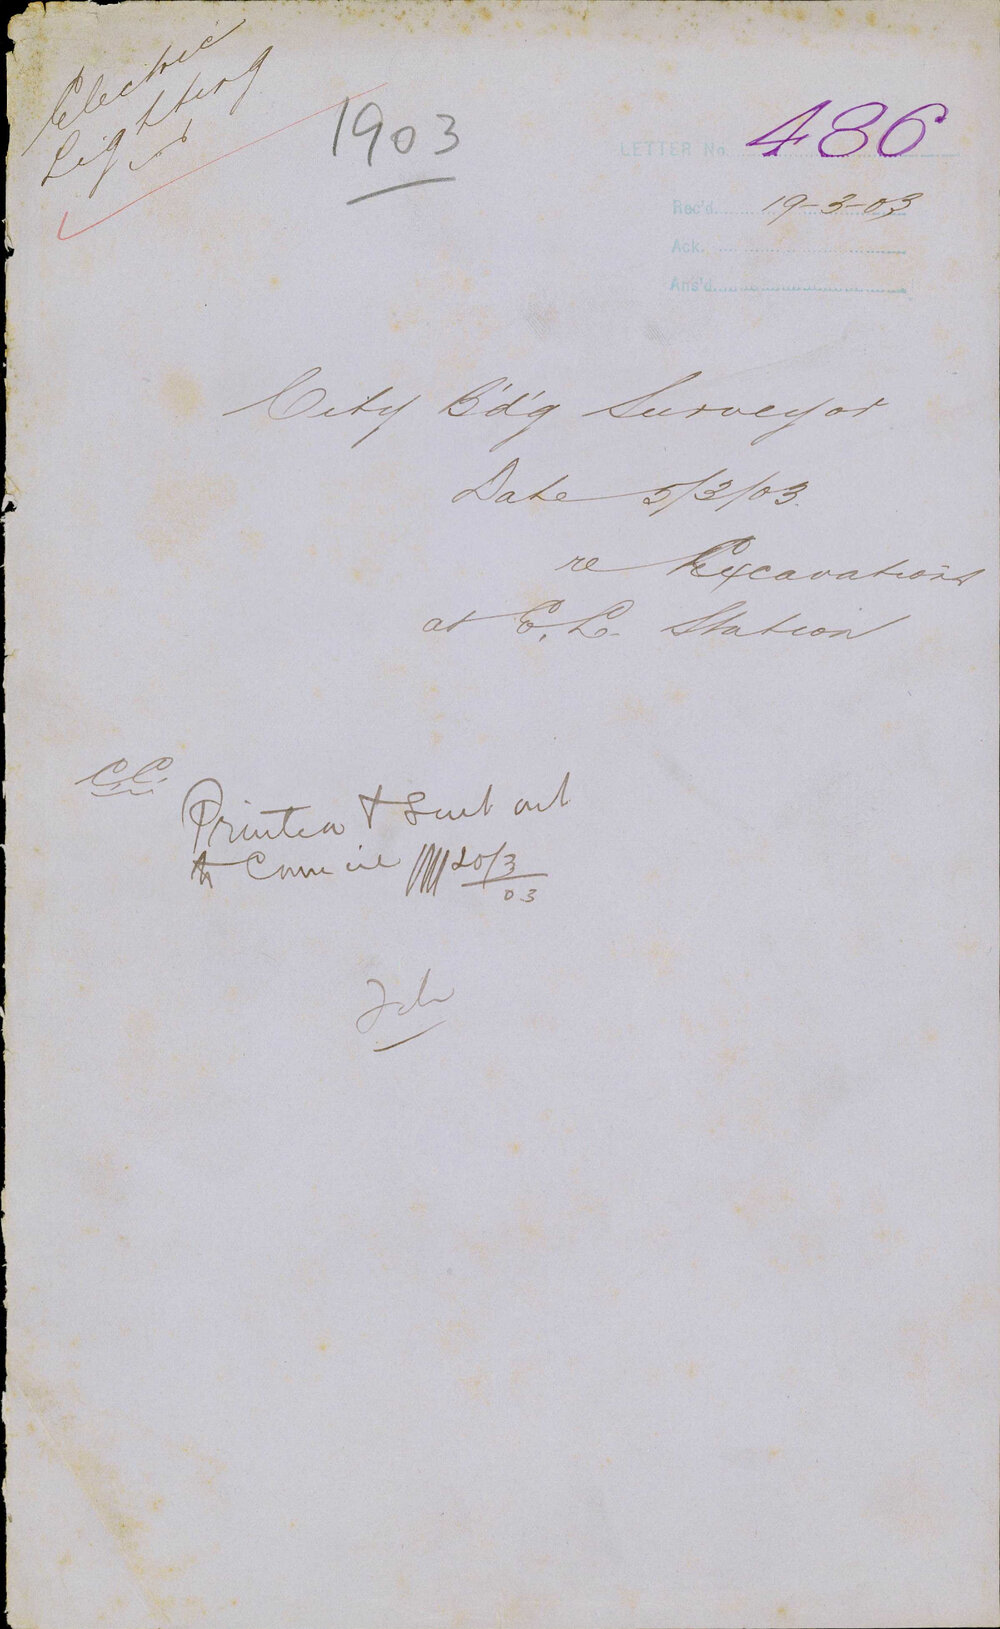 Electric
Lighting
1903
LETTER No. 486
Rec'd. 19-3-03
Ack.
Ans'd.
City B'd'g Surveyor
Date 5/3/03.
re Excavations
at E. L. Station
C.C.
Printed & Sent out
to Council 20/3
03